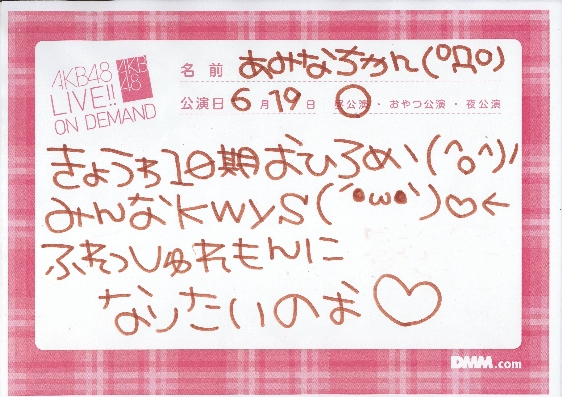 AKB48
LIVE!!
ON DEMAND
AKB
48
名前 あみなちゃん(°Д°)
公演日 6月19日 昼公演・おやつ公演・夜公演
きょうち10期おひろめい(^o^)ﾉ
みんなkwys(´•ω•`)♡←
ふれっしゅれもんに
なりたいのお♡
DMM.com